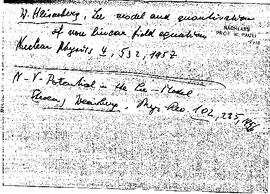 W. Heisenberg, Lee model and quantisation
of non linear field equations
Nuclear Physics 4, 532, 1957
NACHLASS
PROF. W. PAULI
N-V-Potential in the Lee-Model
Weinberg, Phys. Rev. 102, 285, 1956